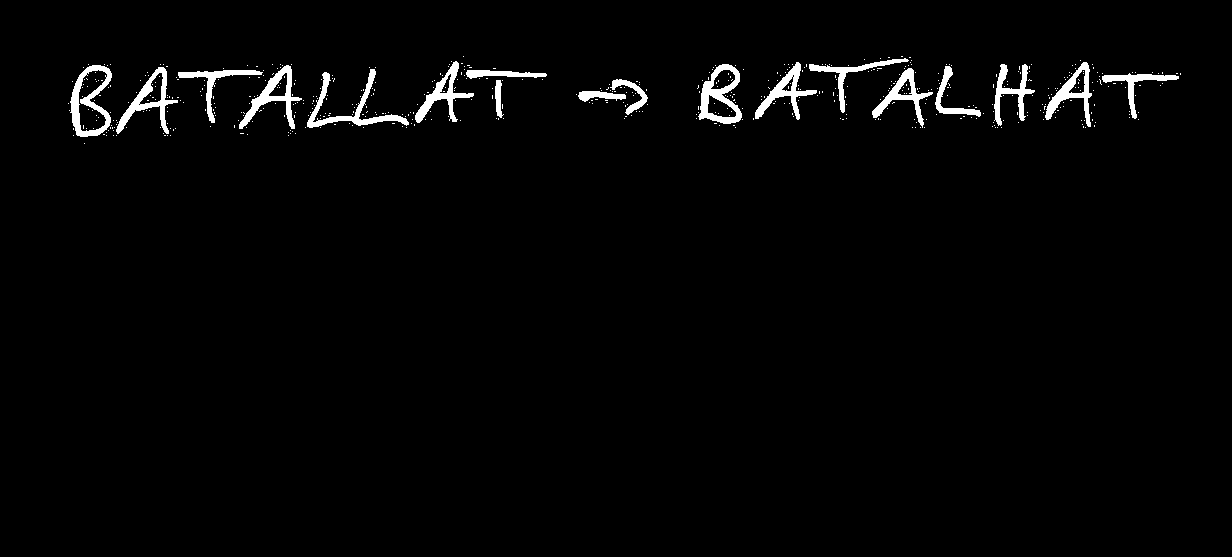 BATALLAT → BATALHAT